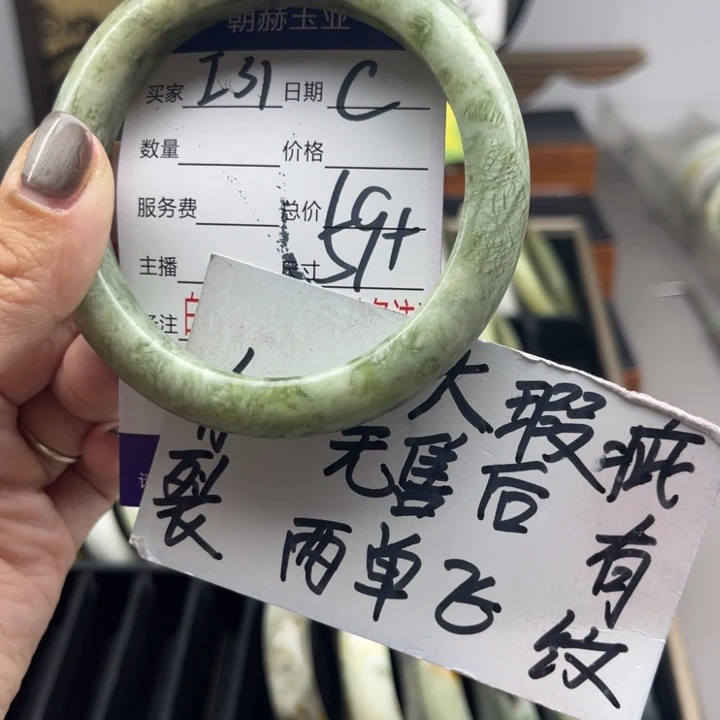 朝赫玉业
买家 131 日期 C
数量 价格
服务费 总价
主播 尺寸
注
大瑕疵
无售后 有
裂 两单飞 纹